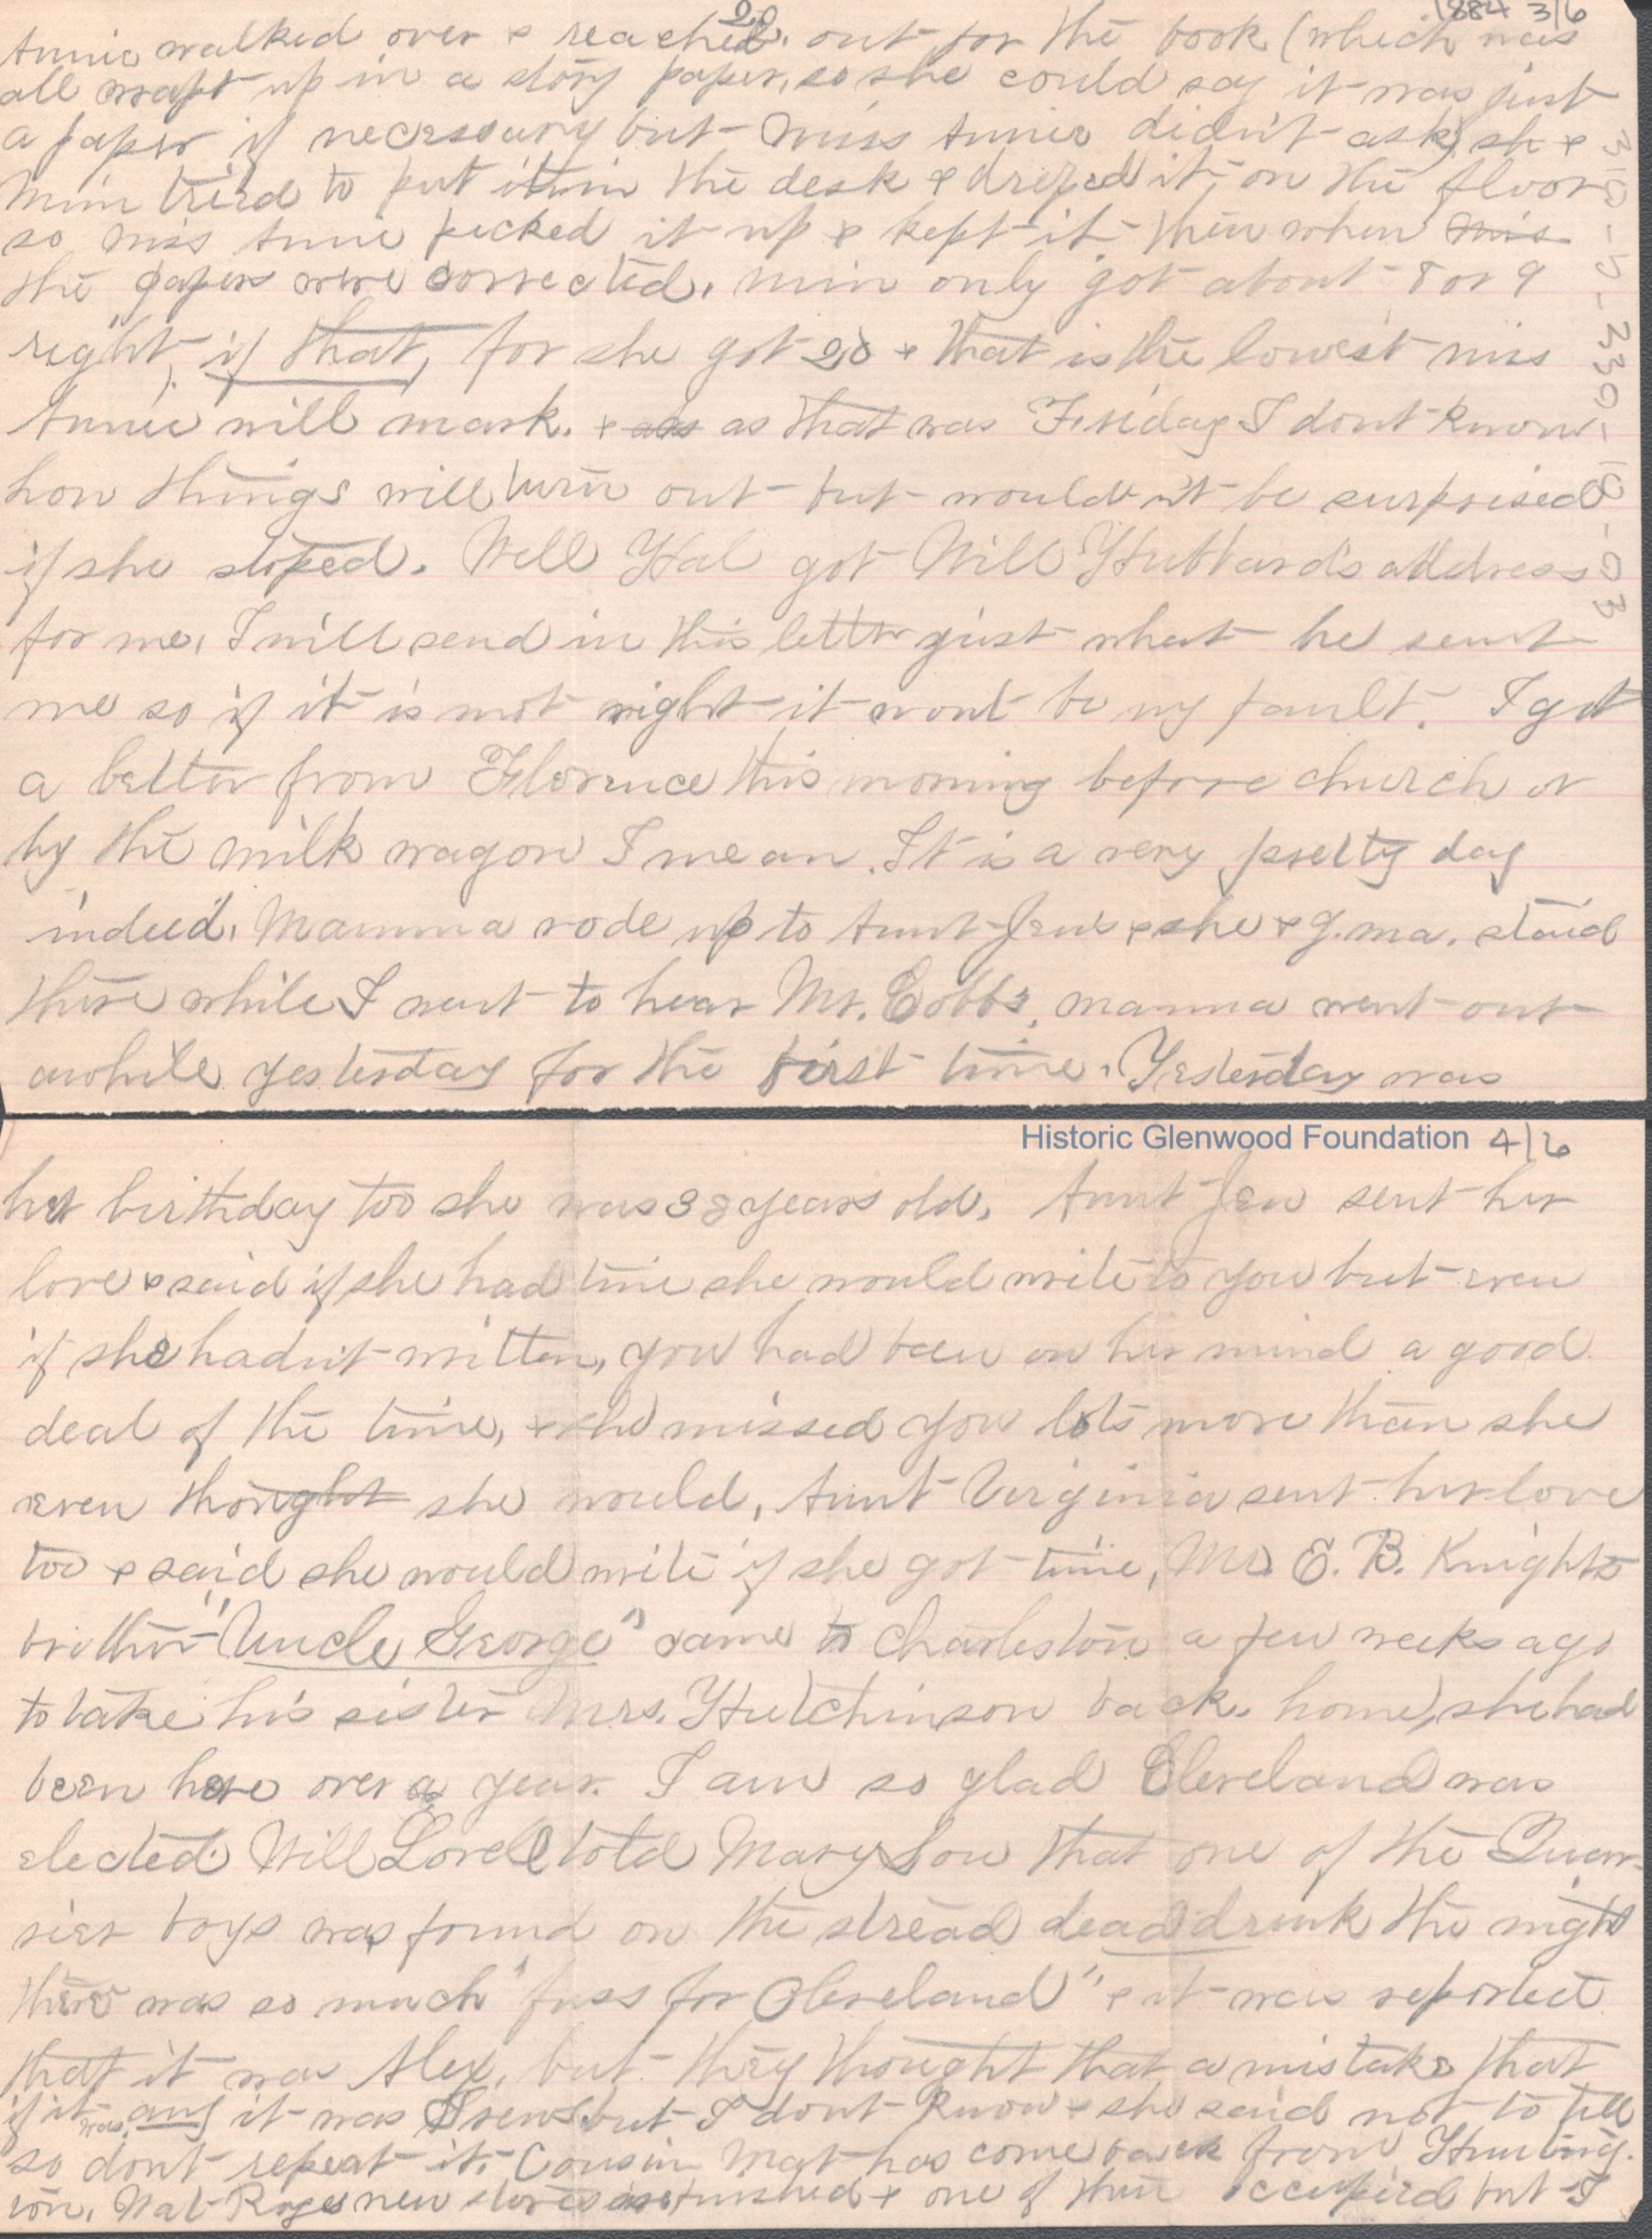 1884 3/6
Annie walked over & reached out for the book (which was
all wrapt up in a story paper, so she could say it was just
a paper if necessary but Miss Annie didn't ask) she &
Min tried to put it in the desk & droped it on the floor
so Miss Annie picked it up & kept it then when Miss
the papers were corrected, Min only got about 8 or 9
right, if that, for she got 20 & that is the lowest Miss
Annie will mark. & as as that was Friday I dont know
how things will turn out but wouldn't be surprised
if she stoped. Well Hal got Will Hubbard's address
for me, I will send in this letter just what he sent
me so if it is not right it wont be my fault. I got
a letter from Florence this morning before church or
by the milk wagon I mean. It is a very pretty day
indeed. Mamma rode up to Aunt Jen's & she & g.ma. staid
there while I went to hear Mr. Cobbs, mamma went out
awhile yesterday for the first time. Yesterday was
Historic Glenwood Foundation 4/6
her birthday too she was 38 years old. Aunt Jen sent her
love & said if she had time she would write to you but even
if she hadn't written, you had been on her mind a good
deal of the time, & she missed you lots more than she
even thought she would, Aunt Virginia sent her love
too & said she would write if she got time, Mr. E. B. Knights
brother "Uncle George" came to Charleston a few weeks ago
to take his sister Mrs. Hutchinson back home, she had
been here over a year. I am so glad Cleveland was
elected. Will Lovell told Mary Lou that one of the Quar-
rier boys was found on the stread dead drunk the night
there was so much "fuss for Cleveland" & it was reported
that it was Alex, but they thought that a mistake that
if it was any it was but I dont know & she said not to tell
so dont repeat it. Cousin Mat has come back from Hunting-
ton. Nat new stores finished & one of them occupied but I